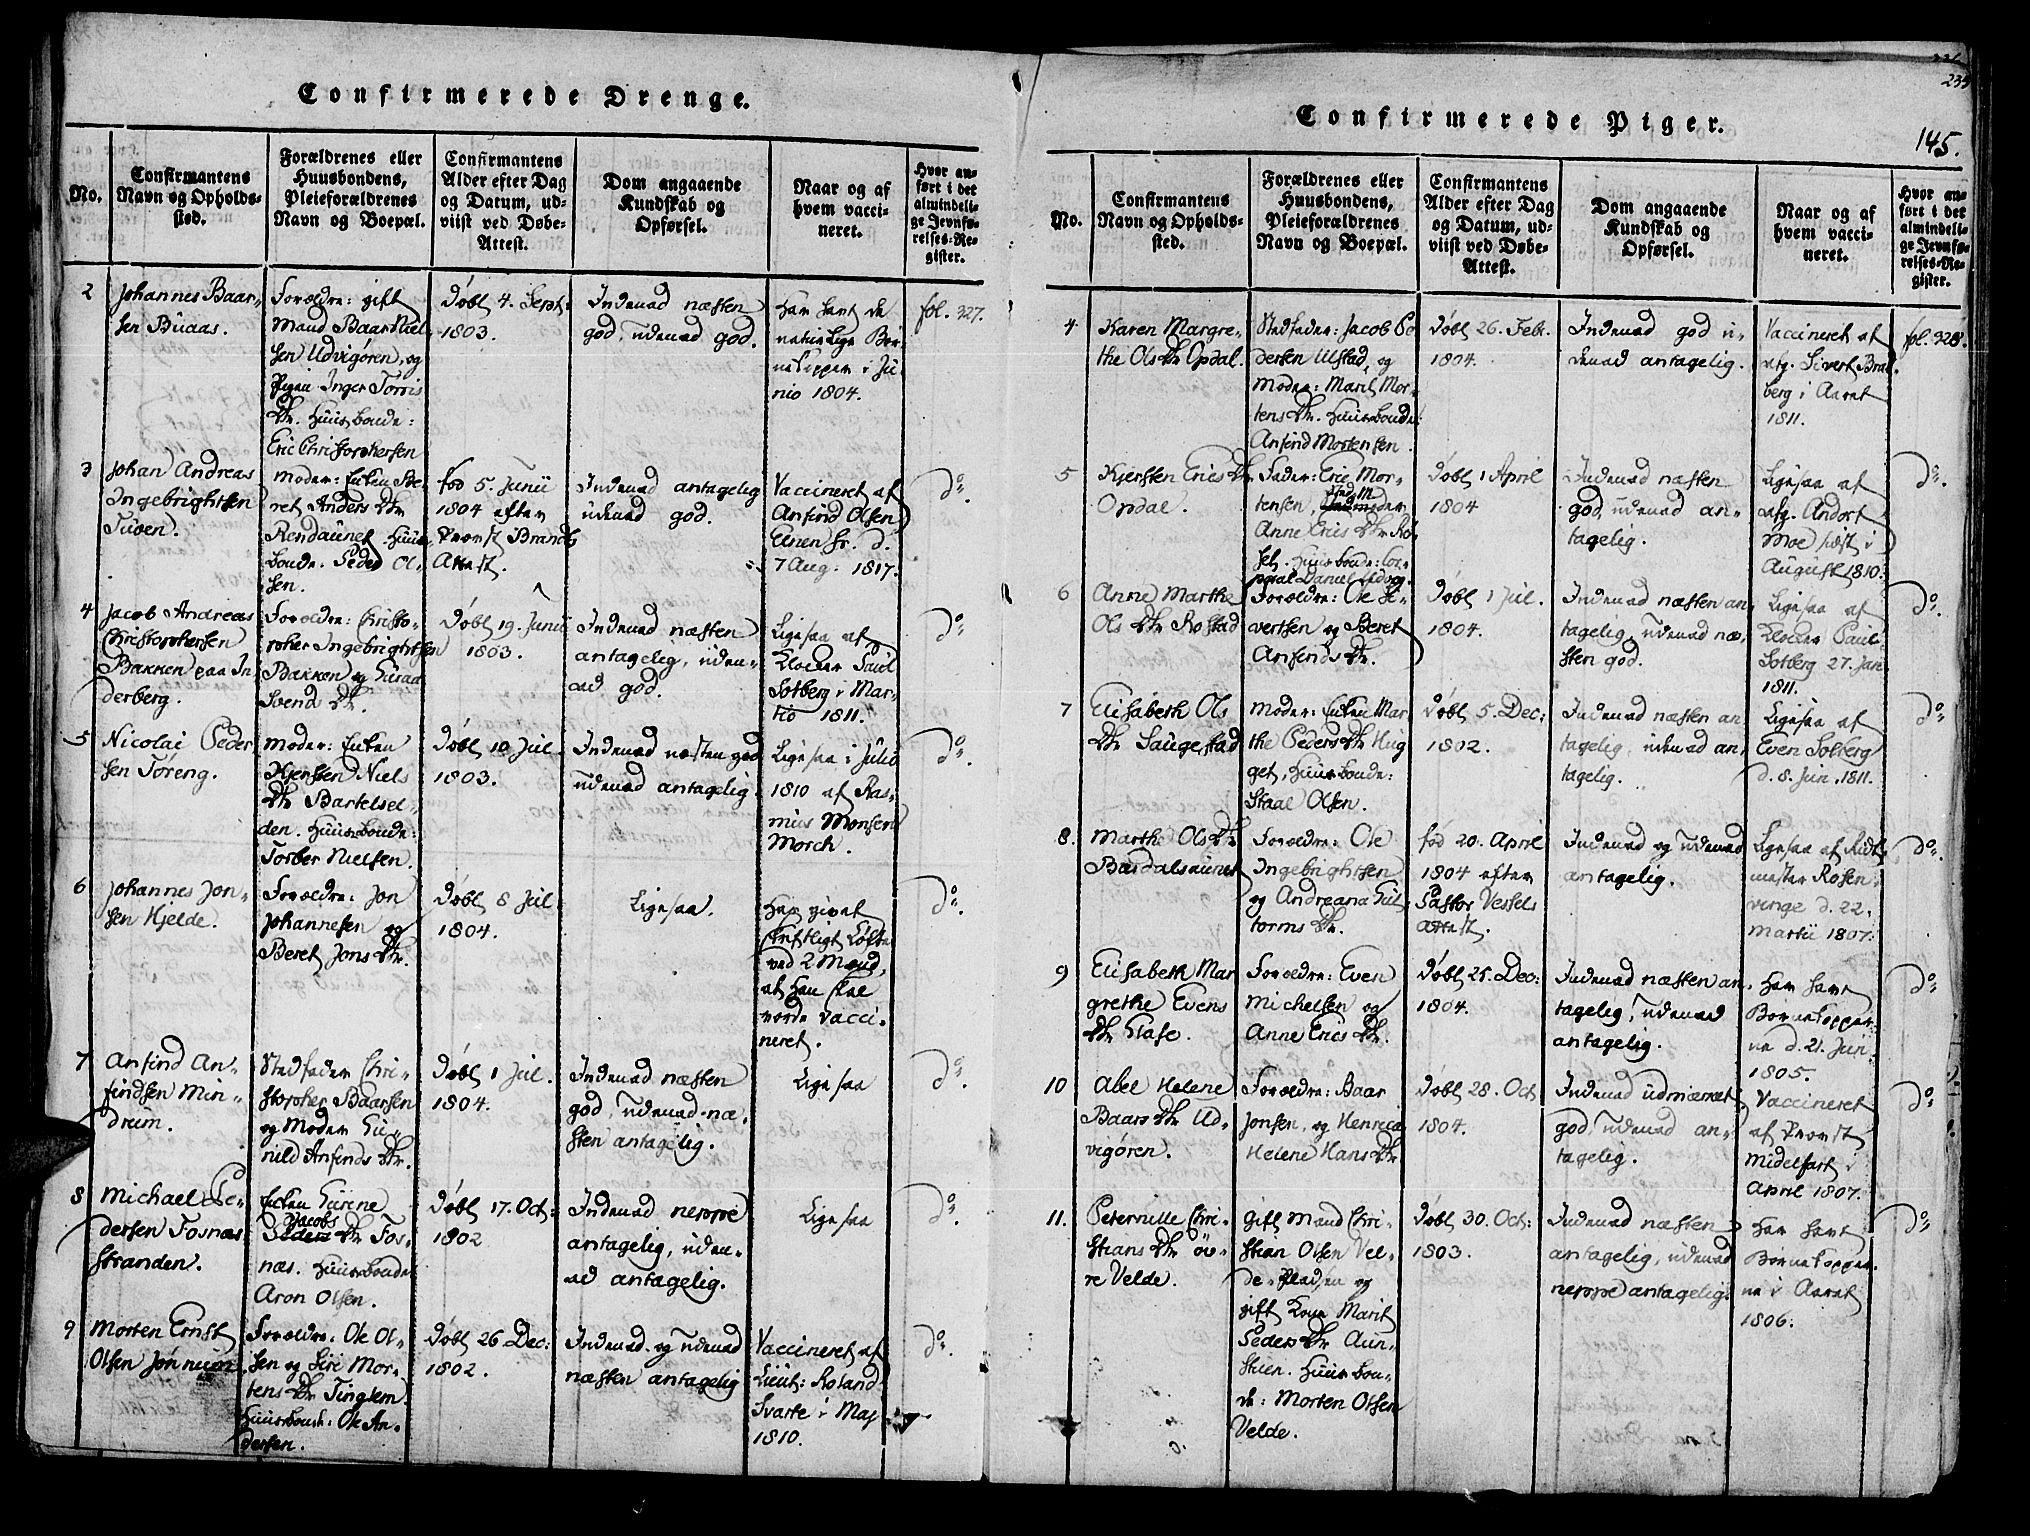 Confirmerede Drenge.
No.
Confirmantens
Navn og Opholds-
sted.
Forældrenes eller
Huusbondens,
Pleieforældrenes
Navn og Boepæl.
Confirmantens
Alder efter Dag
og Datum, ud-
viist ved Døbe-
Attest.
Dom angaaende
Kundskab og
Opførsel.
Naar og af
hvem vacci-
neret.
Hvor an-
ført i det
almindeli-
ge Jevnfø-
relses-Re-
gister.
2
Johannes Baar-
sen Buaas.
Forældre: gift
Mand Baar Niel-
sen Udvigøren, og
Pigen Inger Torris
Dtr. Huusbonde:
Eric Christophersen
Døbt 4. Sept:
1803.
Indenad næsten
god, udenad god.
Har havt de
naturlige Bør-
nekopper i Ju-
nio 1804.
fol. 327.
3
Johan Andreas
Ingebrightsen
Tuven.
Moder: Enken Be-
ret Anders Dtr
Rendaunet. Huus-
bonde. Peder Ol-
sen.
fød 5. Junii
1804 efter
Provst Brandts
Attest.
Indenad antagelig
udenad god.
Vaccineret af
Anfind Olsen
Elnen sr. d.
7 Aug. 1817.
do.
4
Jacob Andreas
Christophersen
Bakken paa In-
derberg.
Forældre: Christo-
pher Ingebrightsen
Bakken og Guruo
Svend Dtr.
Døbt 19. Junii
1803.
Indenad næsten
antagelig, uden-
ad god.
Ligesaa af
Klocker Paul
Solberg i Mar-
tio 1811.
do
5
Nicolai Peder
sen Tøreng.
Moder: Enken
Kjersten Niels
Dtr Bartelsel-
den. Huusbonde:
Torber Nielsen.
Døbt 10 Jul.
1803.
Indenad næsten god
udenad antagelig.
Ligesaa i Julio
1810 af Ras-
mus Monsen
Morch.
do.
6
Johannes Jon-
sen Hjelde.
Forældre: Jon
Johannesen og
Beret Jons Dtr.
Døbt 8 Jul.
1804.
Ligesaa.
Har givet
skriftligt Løfte
ved 2 Mænd,
at han skal
vorde vacci-
neret.
do.
7
Anfind An-
findsen Min-
drum.
Stedfader Chri-
stopher Baarsen
og Moder Gu-
nild Anfinds Dtr.
Døbt 1 Jul.
1804.
Indenad næsten
god, udenad næ-
sten antagelig.
Ligesaa
do.
8
Michael Pe-
dersen Fosnæs
stranden.
Enken Gurine
Jacobs
Peders Dtr Fos-
næs. Huusbonde
Aron Olsen.
Døbt 17. Oct:
1802
Indenad neppe
antagelig, uden-
ad antagelig.
Ligesaa
do.
9
Morten Ernst
Olsen Jønnum
Forældre: Ole Ol-
sen og Siri Mor-
tens Dtr Tinglem.
Huusbond: Ole An-
dersen.
Døbt 26 Dec:
1802.
Indenad og udenad
næsten antagelig
Vaccineret af
Lieut: Roland
Svarte i Maj
1810.
do.
235
145.
Confirmerede Piger.
No.
Confirmantens
Navn og Opholds-
sted.
Forældrenes eller
Huusbondens,
Pleieforældrenes
Navn og Boepæl.
Confirmantens
Alder efter Dag
og Datum, ud-
viist ved Døbe-
Attest.
Dom angaaende
Kundskab og
Opførsel.
Naar og af
hvem vacci-
neret.
Hvor an-
ført i det
almindeli-
ge Jevnfø-
relses-Re-
gister.
4
Karen Margre-
the Ols Dtr Opdal.
Stedfader: Jacob Pe
dersen Ulstad, og
Moder: Marit Mor-
tens Dtr. Huusbonde:
Anfind Mortensen.
Døbt 26. Febr.
1804.
Indenad god u-
denad antagelig.
Vaccineret af
afg. Sivert Brat
berg i Aaret
1811.
fol. 328.
5
Kjersten Erics Dtr
Opdal.
Fader: Eric Mor-
tensen, Stedmoder
Anne Erics Dtr Rø-
sel. Huusbonde: Cor-
poral Daniel Udvog.
Døbt 1 April
1804
Indenad næsten
god, udenad an-
tagelig.
Ligesaa af
afg. Andort
Moe sæst i
August 1810.
do.
6
Anne Martha
Ols Dtr Rostad
Forældre: Ole Si-
vertsen og Beret
Anfinds Dtr.
Døbt 1 Jul.
1804.
Indenad næsten an
tagelig, udenad næ-
sten god.
Ligesaa af
Klocker Paul
Solberg 27. Jan
1811.
do.
7
Elisabeth Ols
Dtr Saugestad
Moder: Enken Mar-
the Peders Dtr Hug
get, Huusbonde:
Staal Olsen.
Døbt 5. Dec:
1802.
Indenad næsten an
tagelig, udenad an-
tagelig.
Ligesaa af
Even Solberg
d. 8. Jun. 1811.
do
8.
Martha Ols Dtr
Bardalsaunet
Forældre: Ole
Ingebrightsen
og Andreana Gut-
torms Dtr.
fød 20. April
1804 efter
Pastor Vessels
Attest.
Indenad og udenad
antagelig.
Ligesaa af Ridt-
mester Rosen-
vinge d. 22.
Martii 1807.
do.
9
Elisabeth Mar
grethe Evens
Dtr Stafe.
Forældre: Even
Michelsen og
Anne Erics Dtr.
Døbt 25. Dec:
1804.
Indenad næsten an-
tagelig, udenad
antagelig.
Har havt
Børnekopper-
ne d. 21. Jun.
1805.
do
10
Abel Helene
Baars Dtr Ud-
vigøren.
Forældre: Baar
Jonsen, og Henrica
Helene Hans Dtr
Døbt 28. Oct
1804.
Indenad udmærket
god, udenad an-
tagelig.
Vaccineret
af Provst
Midelfart i
April 1807.
do
11.
Peternille Chri-
stians Dtr øv-
re Velde.
Gift Mand Chri-
stian Olsen Vel-
de-Pladsen og
gift Kone Marit
Peders Dtr Aun-
stien. Huusbon-
de: Morten Olsen
Velde.
Døbt 30. Oct:
1803.
Indenad næsten
antagelig, udenad
neppe antagelig.
Har havt
Børnekopper-
ne i Aaret
1806.
do